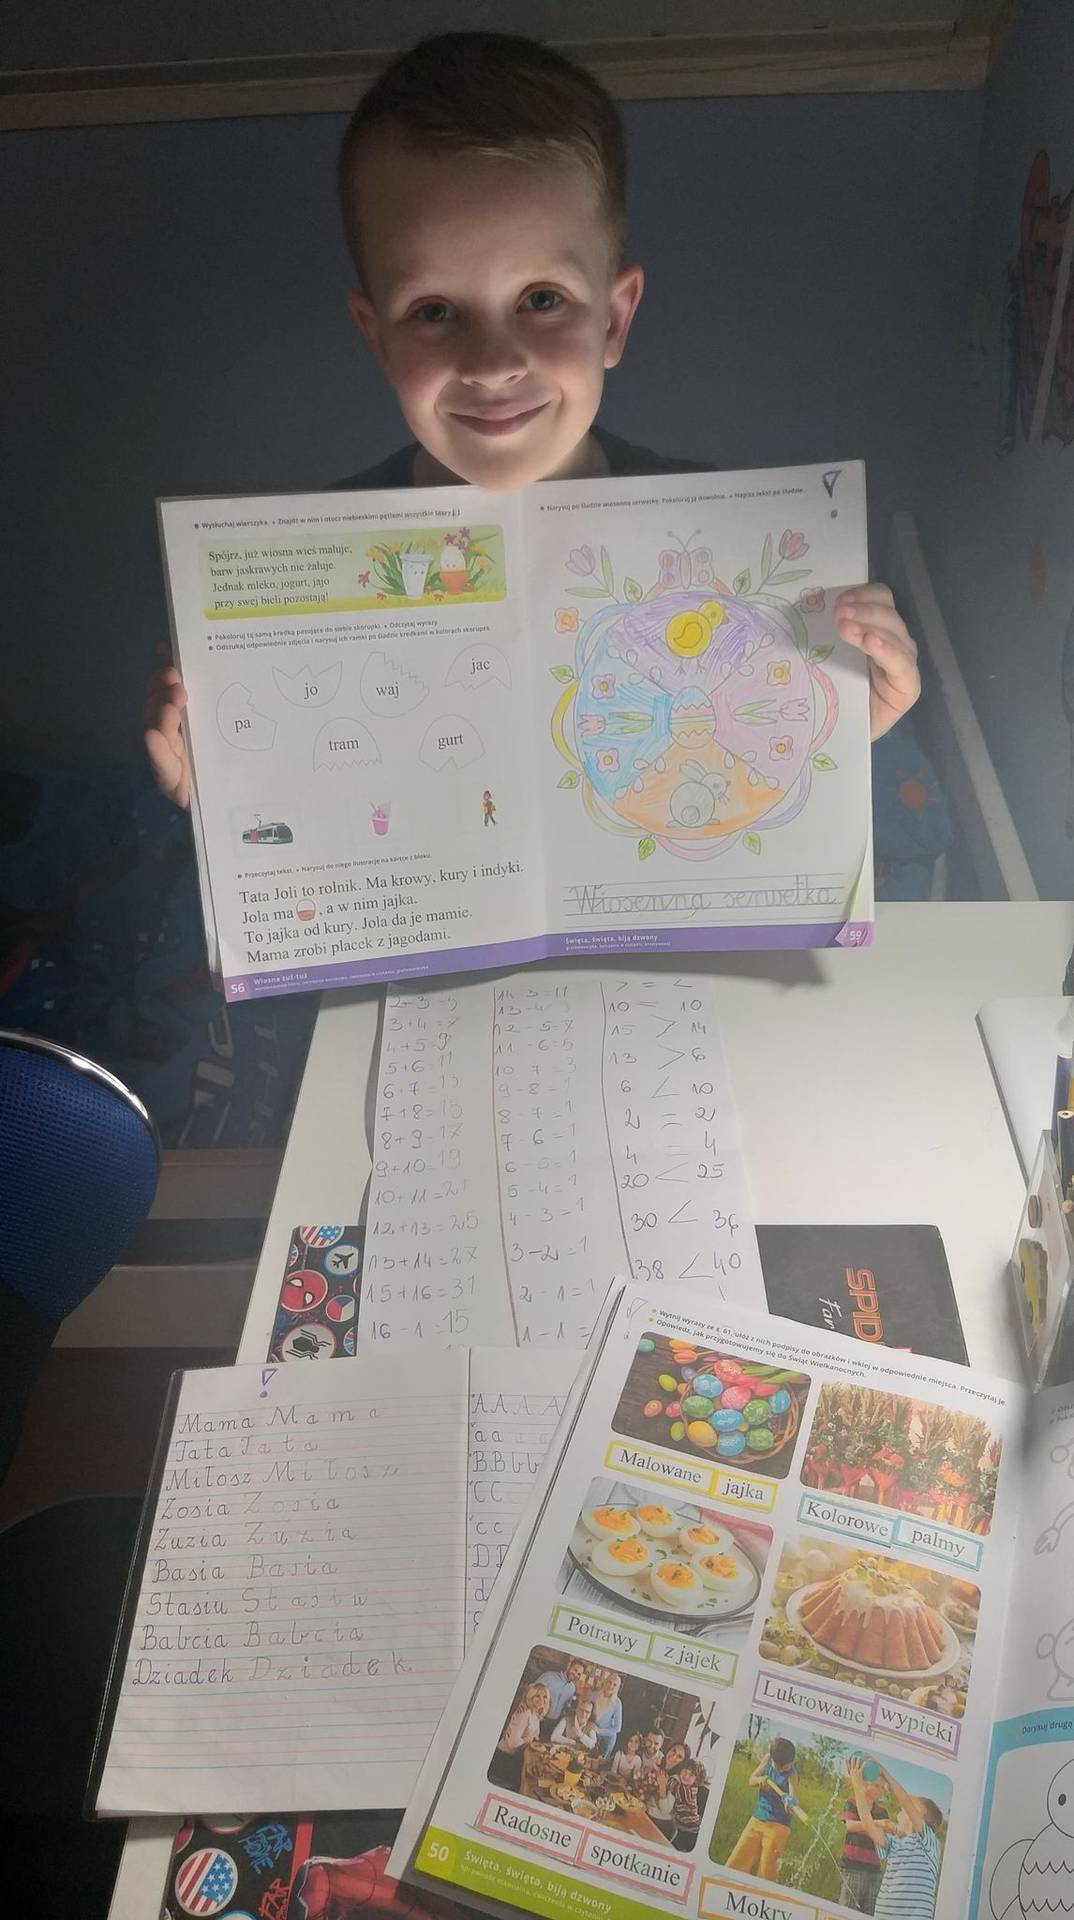 Wysłuchaj wierszyka. Znajdź w nim i otocz niebieskimi pętlami wszystkie litery j, J.
Spójrz, już wiosna wieś maluje,
barw jaskrawych nie żałuje.
Jednak mleko, jogurt, jajo
przy swej bieli pozostają!
Pokoloruj tą samą kredką pasujące do siebie skorupki. Odczytaj wyrazy.
Odszukaj odpowiednie zdjęcia i narysuj ich ramki po śladzie kredkami w kolorach skorupek.
pa
jo
waj
jac
tram
gurt
Przeczytaj tekst. Narysuj do niego ilustrację na kartce z bloku.
Tata Joli to rolnik. Ma krowy, kury i indyki.
Jola ma , a w nim jajka.
To jajka od kury. Jola da je mamie.
Mama zrobi placek z jagodami.
56 Wiosna tuż-tuż
Narysuj po śladzie wiosenną serwetkę. Pokoloruj ją dowolnie. Napisz tekst po śladzie.
Wiosenna serwetka
Święta, święta, biją dzwony
59
2+3=5
3+4=7
4+5=9
5+6=11
6+7=13
7+8=15
8+9=17
9+10=19
10+11=21
12+13=25
13+14=27
15+16=31
16-1=15
14-3=11
12-5=7
11-6=5
10-7=3
9-8=1
8-7=1
7-6=1
6-5=1
5-4=1
4-3=1
3-2=1
2-1=1
1-1=
> = <
10 = 10
15 > 14
13 > 6
6 < 10
2 = 2
4 = 4
20 < 25
30 < 36
38 < 40
SPID
Far
Mama Mama
Tata Tata
Miłosz Miłosz
Zosia Zosia
Zuzia Zuzia
Basia Basia
Stasiu Stasiu
Babcia Babcia
Dziadek Dziadek
A A A A
a a a a
B B b b
C C
c c
D D
d
Wytnij wyrazy ze s. 61, ułóż z nich podpisy do obrazków i wklej w odpowiednie miejsca. Przeczytaj je.
Opowiedz, jak przygotowujemy się do Świąt Wielkanocnych.
Malowane jajka
Kolorowe palmy
Potrawy z jajek
Lukrowane wypieki
Radosne spotkanie
Mokry
50 Święta, święta, biją dzwony
Dorysuj drugą
FAR